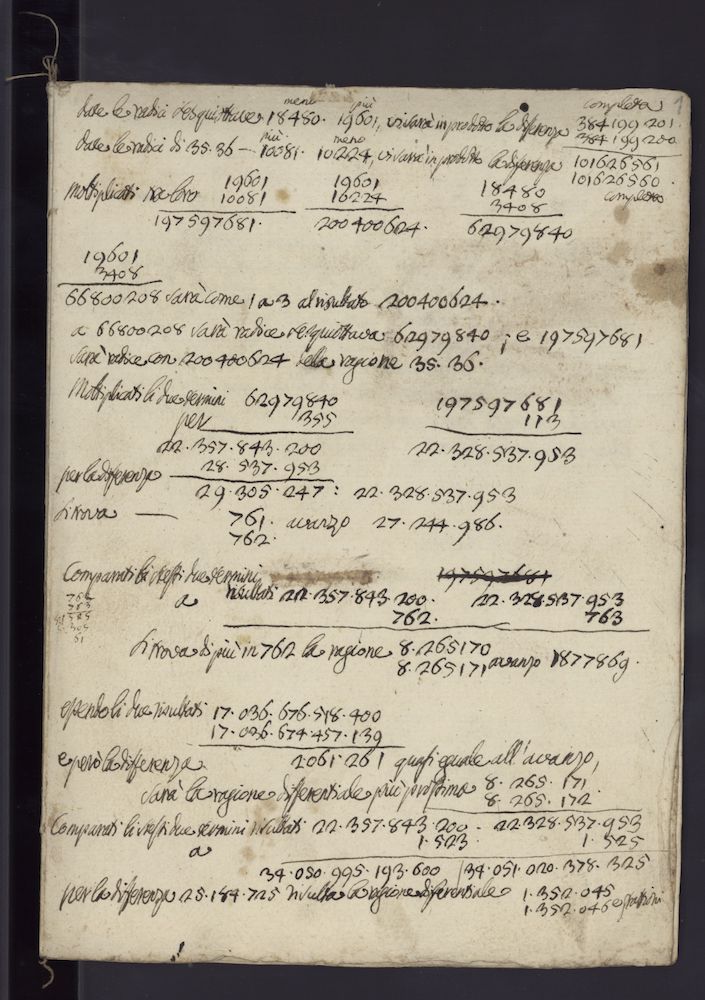 completa 1
meno più
Date le radici sesquiottave 18480. 19601, vi sarà in prodotto la differenza 384 199 201.
384 199 200
più meno
Date le radici di 35.36 — 10081. 10224, vi sarà in prodotto la differenza 101626561
101626560.
completa
Moltiplicati tra loro 19601 19601 18480
10081 10224 3408
197597681. 200400624. 62979840
19601
3408
66800208 sarà come 1 a 3 al risultato 200400624.
a 66800208 sarà radice sesquiottava 62979840; e 197597681
sarà radice con 200400624 della ragione 35.36.
Moltiplicati li due termini 62979840 197597681
per 355 113
22.357.843.200 22.328.537.953
per la differenza 28.537.953
29.305.247: 22.328.537.953
si trova — 761. avanzo 27.244.986.
762.
Comparati li stessi due termini 197597681
risultati 22.357.843.200. 22.328.537.953
a 762. 763
si trova di più in 762 la ragione 8.265170
8.265171 avanzo 1877869.
essendo li due risultati 17.036.676.518.400
17.036.674.457.139
e però la differenza 2061.261 quasi eguale all'avanzo,
sarà la ragione differentiale più prossima 8.265.171
8.265.172.
Comparati li stessi due termini risultati 22.357.843.200. 22.328.537.953
1.523. 1.525
a
34.050.995.193.600 34.051.020.378.325
per la differenza 25.184.725 risulta la ragione differentiale 1.352.045
1.352.046